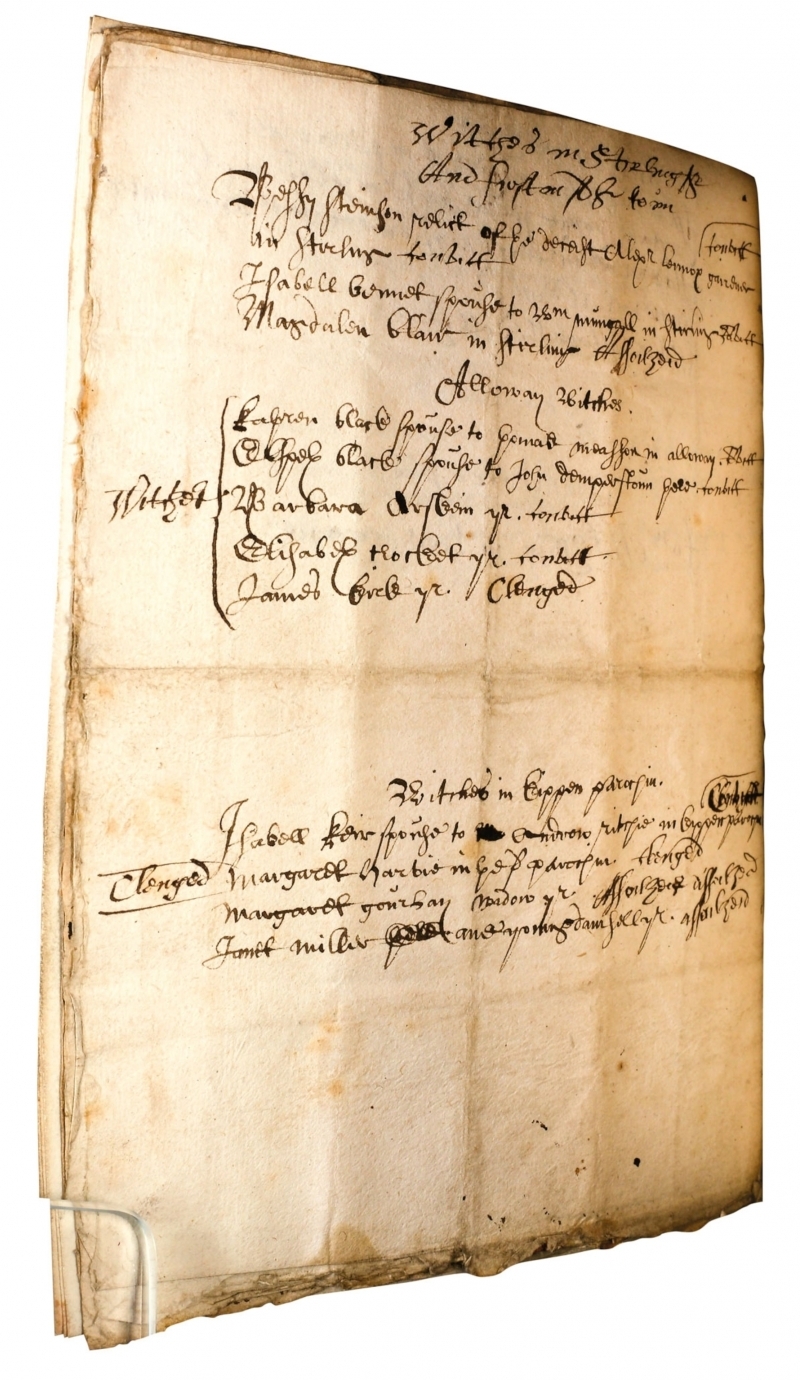 Witches in Stirlingshyr
And first in the town
Bessy Steinson relict of the deceist Alexr lennox gairdner convict
in Sterling convict
Isabell bennet spouse to Wm mungall in Stirling
Magdalen blair in Sterling Assoilzeid
Alloway witches.
kathren black spouse to thomas measson in alloway.
Elspeth black spouse to John demperstoun there convict
Witches
Barbara Erskein yr. convict
Elisabeth crocket yr. convict
James kirk yr. Clenged
Witches in kippen parochin.
Isabell keir spouse to Andrew ritchie in kippen parochin
Clenged Margaret harvie in the sd parochin clenged
Margaret gourlay widow yr. Assoilzeid Assoilzeid
Janet miller ane young damsell yr. assoilzeid